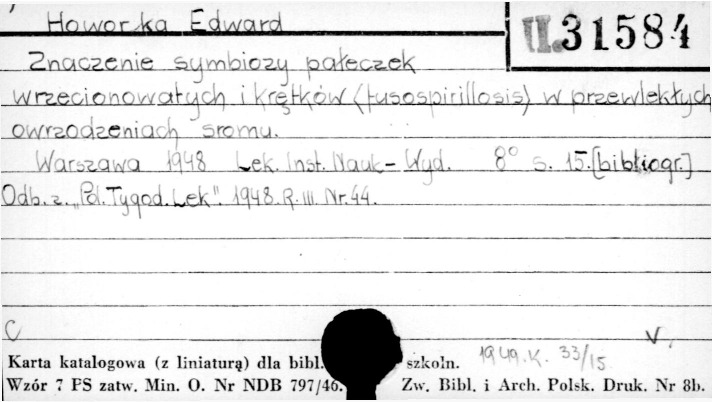 Howorka Edward
II.31584
Znaczenie symbiozy pałeczek
wrzecionowatych i krętków (fusospirillosis) w przewlekłych
owrzodzeniach sromu.
Warszawa 1948 Lek. Inst. Nauk-Wyd. 8° s. 15.[bibliogr.]
Odb. z. „Pol. Tygod. Lek". 1948. R. III. Nr. 44.
C
V,
Karta katalogowa (z liniaturą) dla bibl. szkoln. 1949. K. 33/15
Wzór 7 PS zatw. Min. O. Nr NDB 797/46. Zw. Bibl. i Arch. Polsk. Druk. Nr 8b.